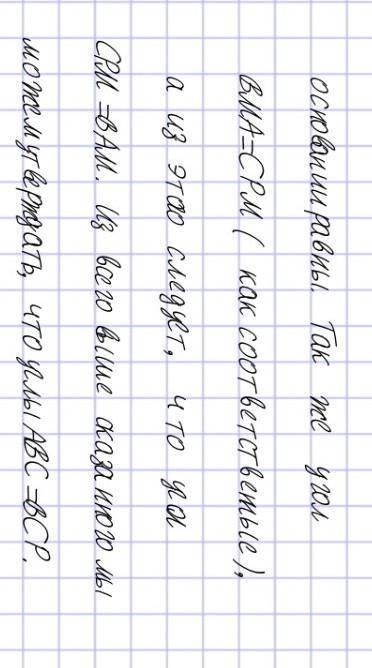 основании равны. Так же угол
ВМА=СРМ ( как соответственые),
а из этого следует, что угол
СРМ =ВАМ. Из всего выше сказаного мы
можем утверждать, что углы АВС=ВСР.